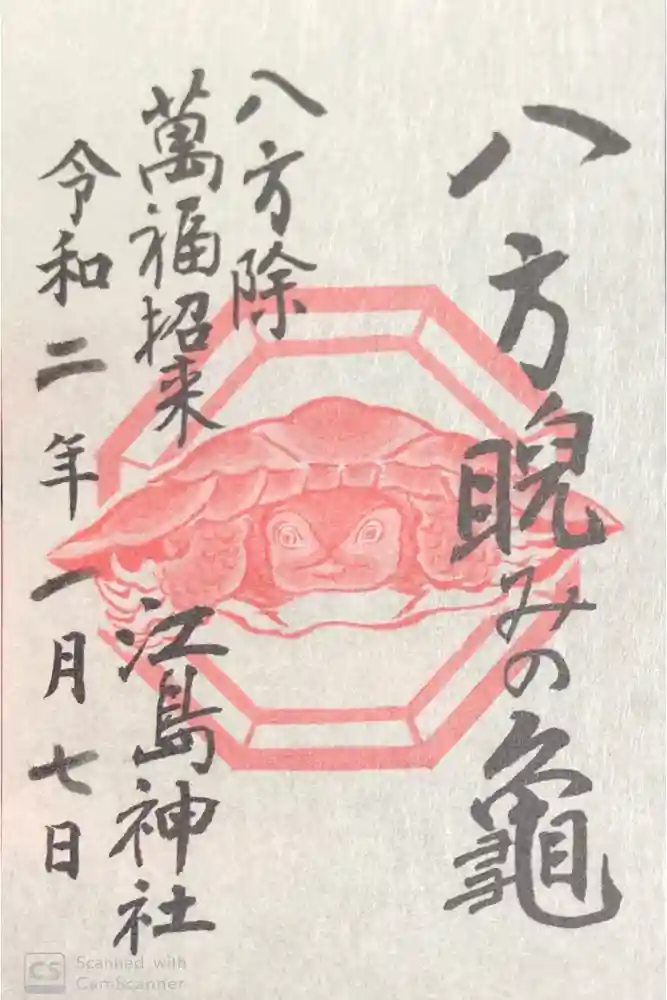 八方睨みの龜
八方除
萬福招来
江島神社
令和二年一月七日
CS Scanned with
CamScanner